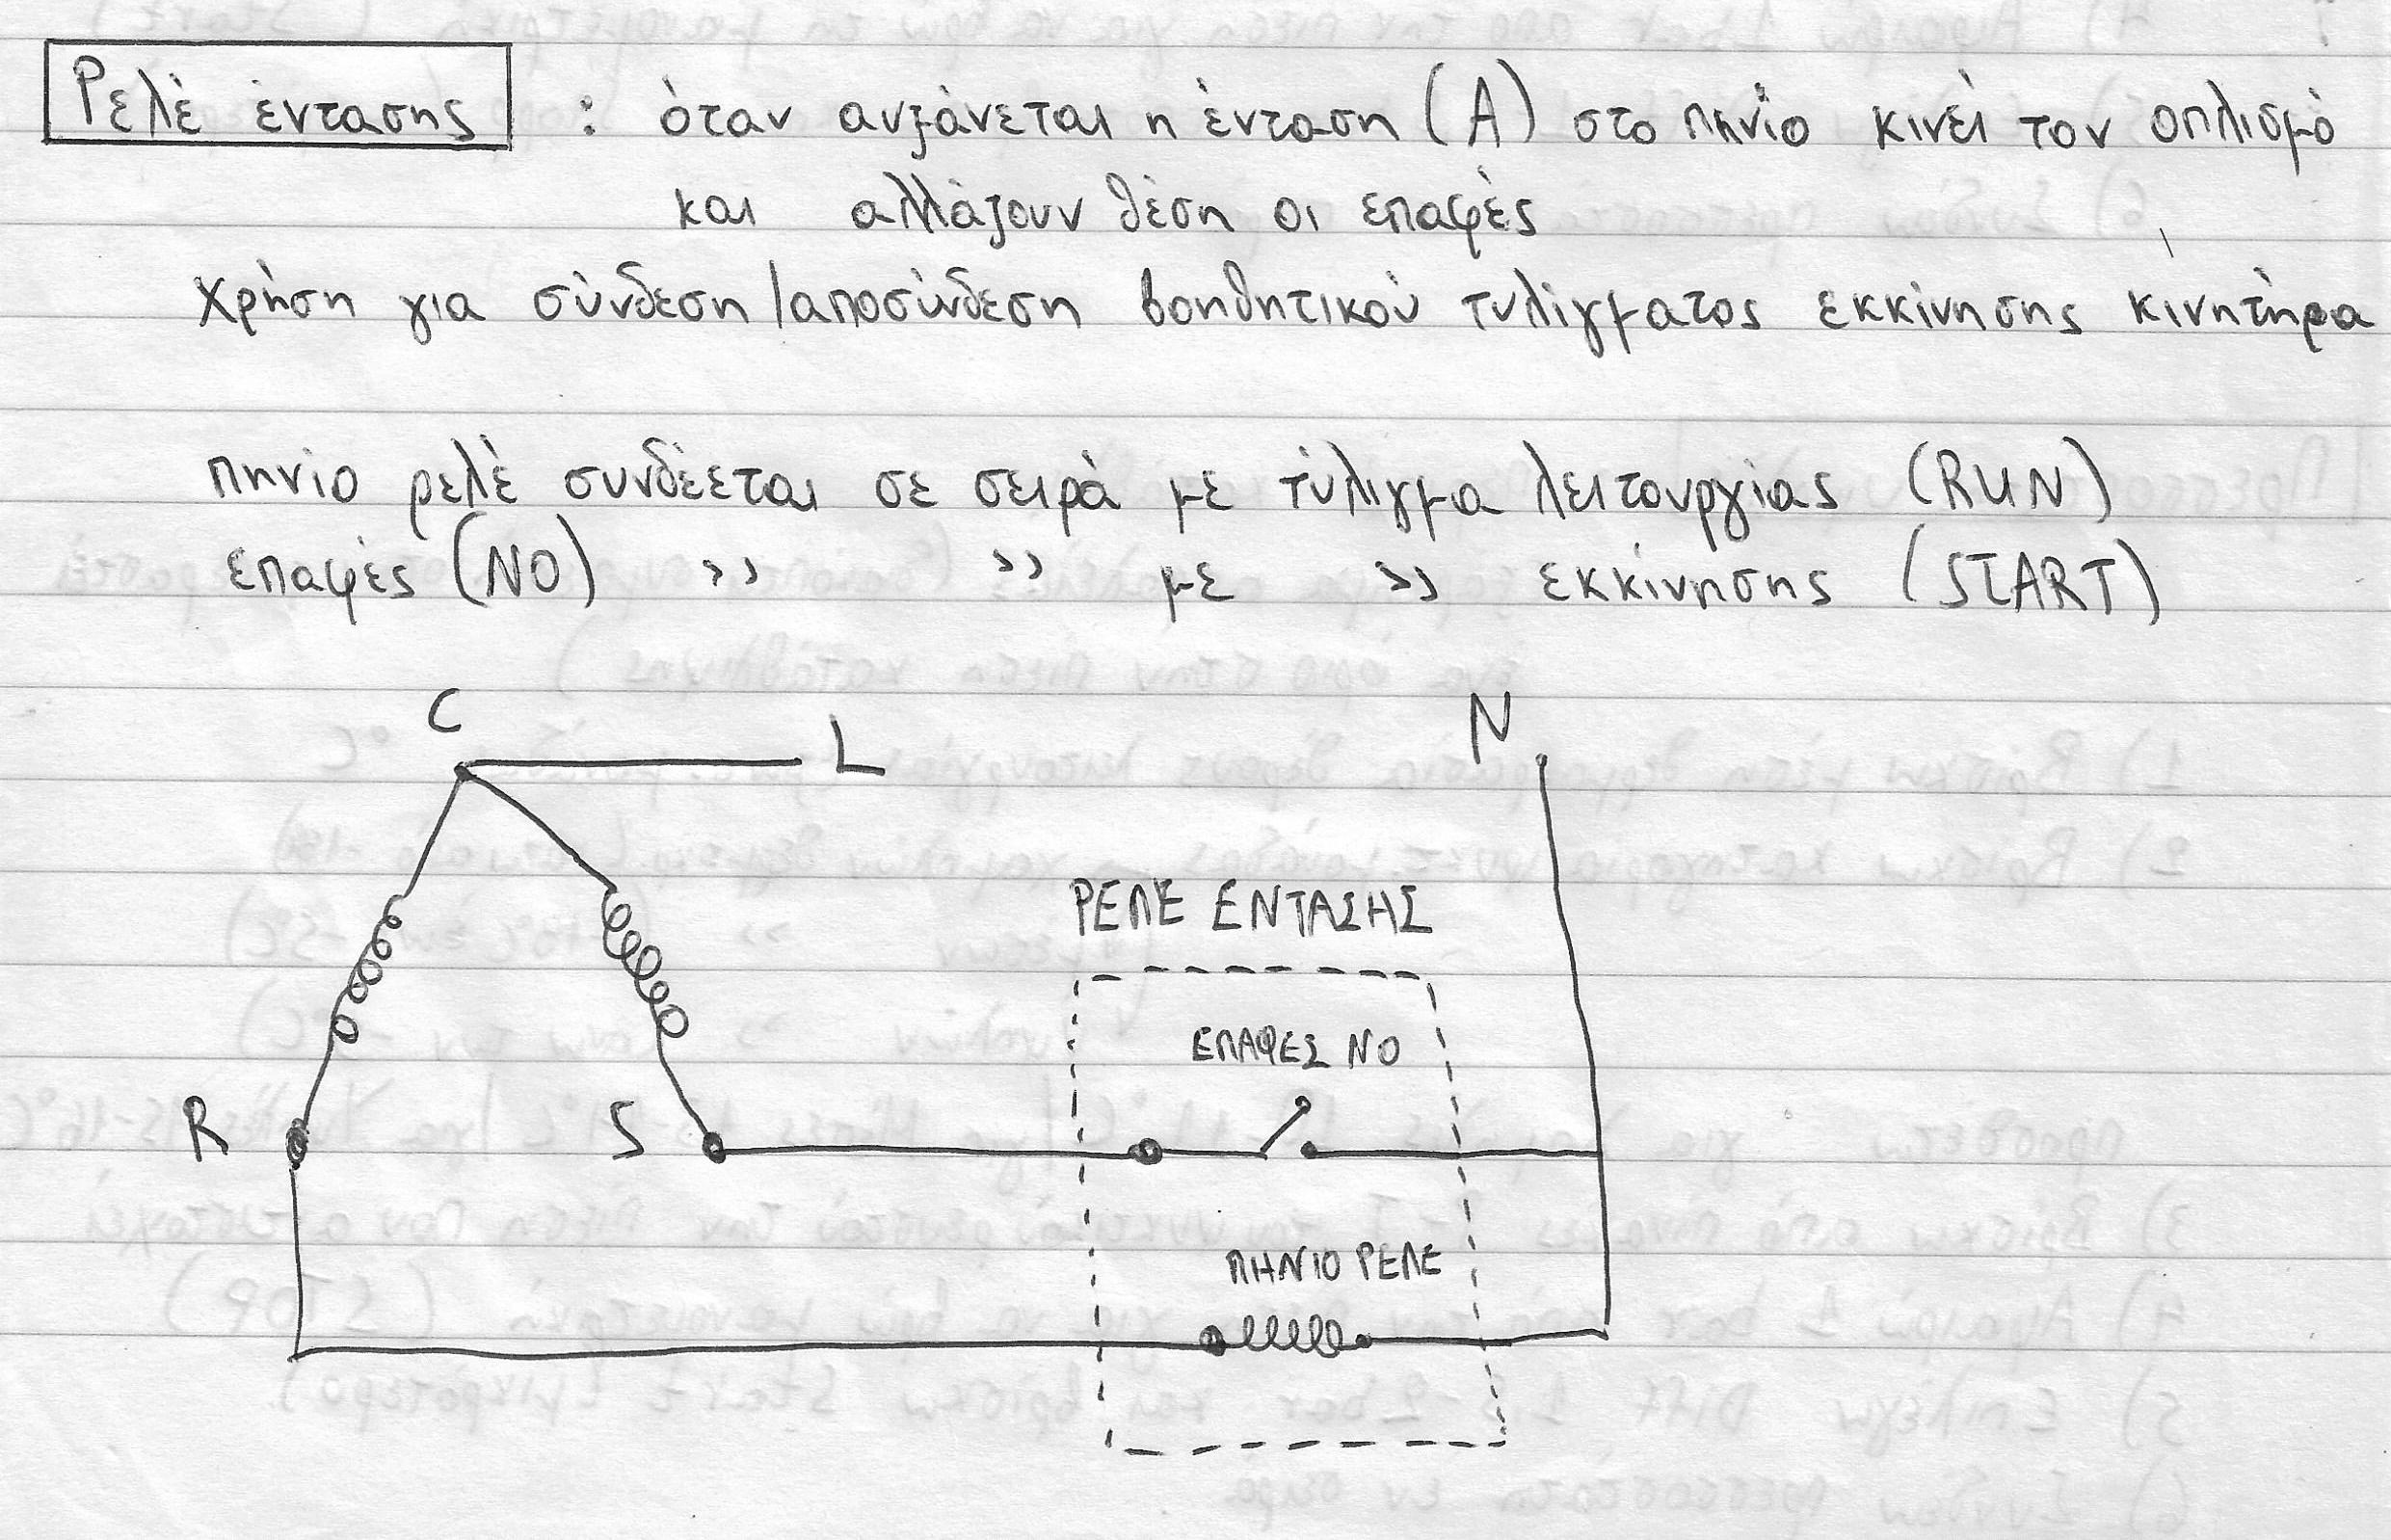 Ρελέ έντασης : όταν αυξάνεται η ένταση (Α) στο πηνίο κινεί τον οπλισμό
και αλλάζουν θέση οι επαφές
χρήση για σύνδεση/αποσύνδεση βοηθητικού τυλίγματος εκκίνησης κινητήρα
πηνίο ρελέ συνδέεται σε σειρά με τύλιγμα λειτουργίας (RUN)
επαφές (NO) >> >> με >> εκκίνησης (START)
C
L
N
ΡΕΛΕ ΕΝΤΑΣΗΣ
ΕΠΑΦΕΣ NO
R
S
ΠΗΝΙΟ ΡΕΛΕ